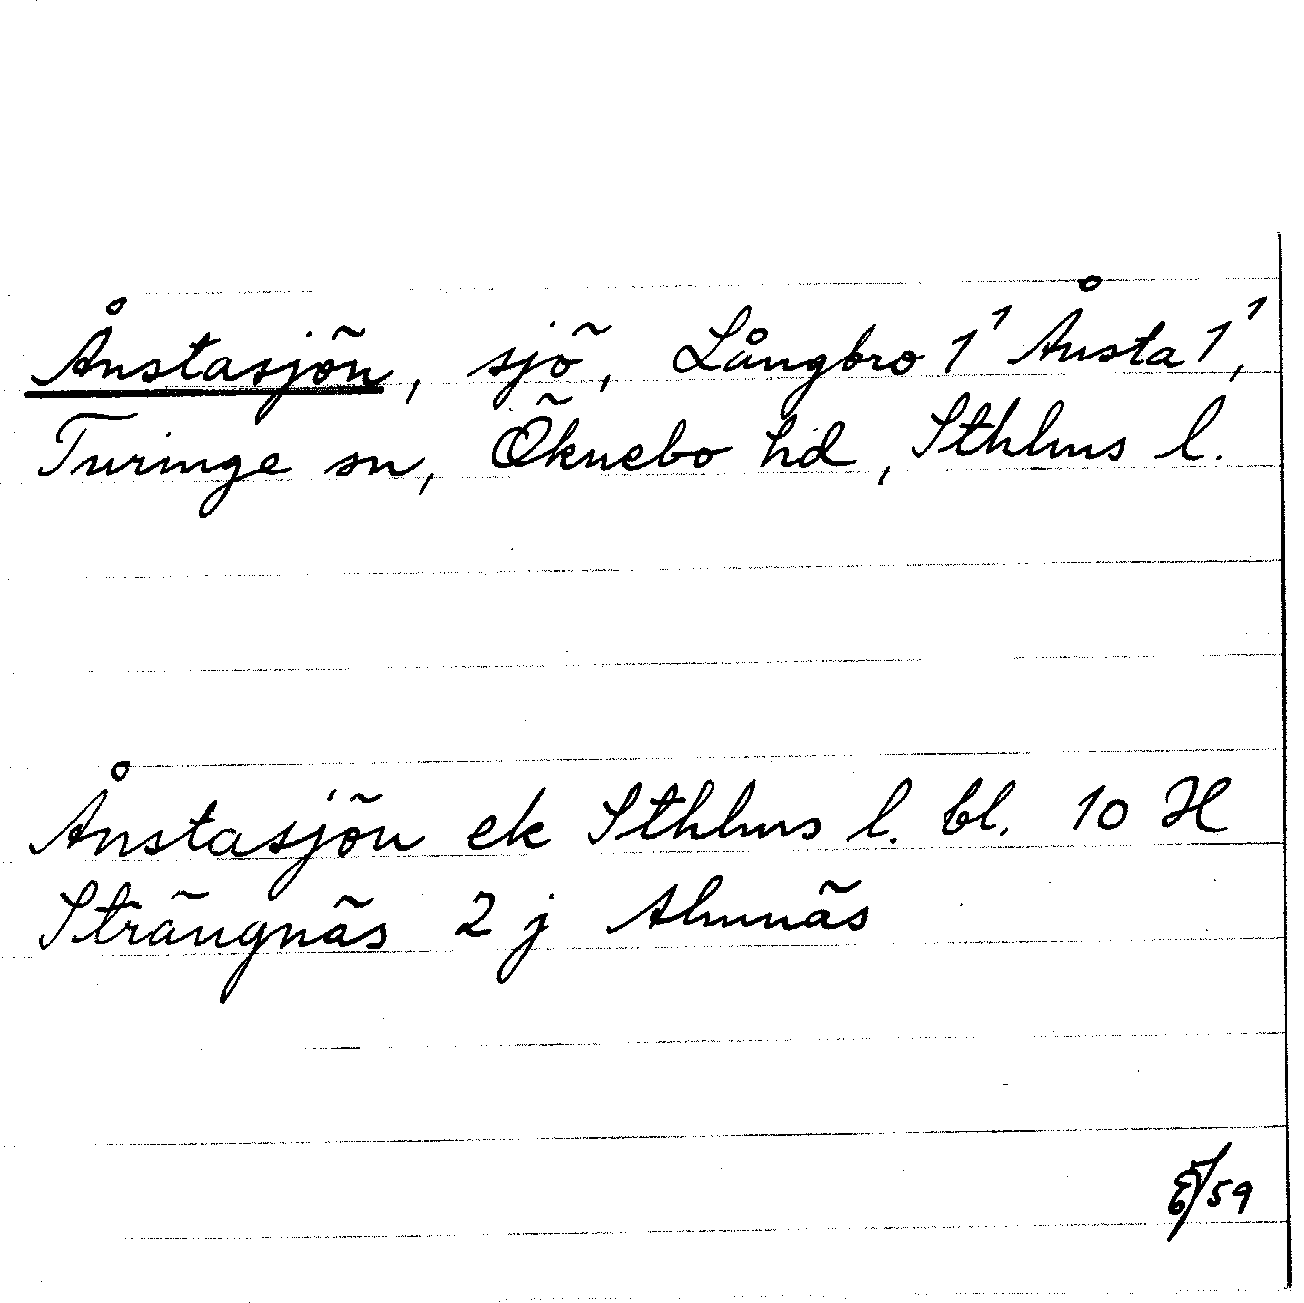 Ånstasjön, sjö, Långbro 1¹ Ånsta 1¹,
Turinge sn, Öknebo hd, Sthlms l.
Ånstasjön ek Sthlms l. bl. 10 H
Strängnäs 2 j Almnäs
59